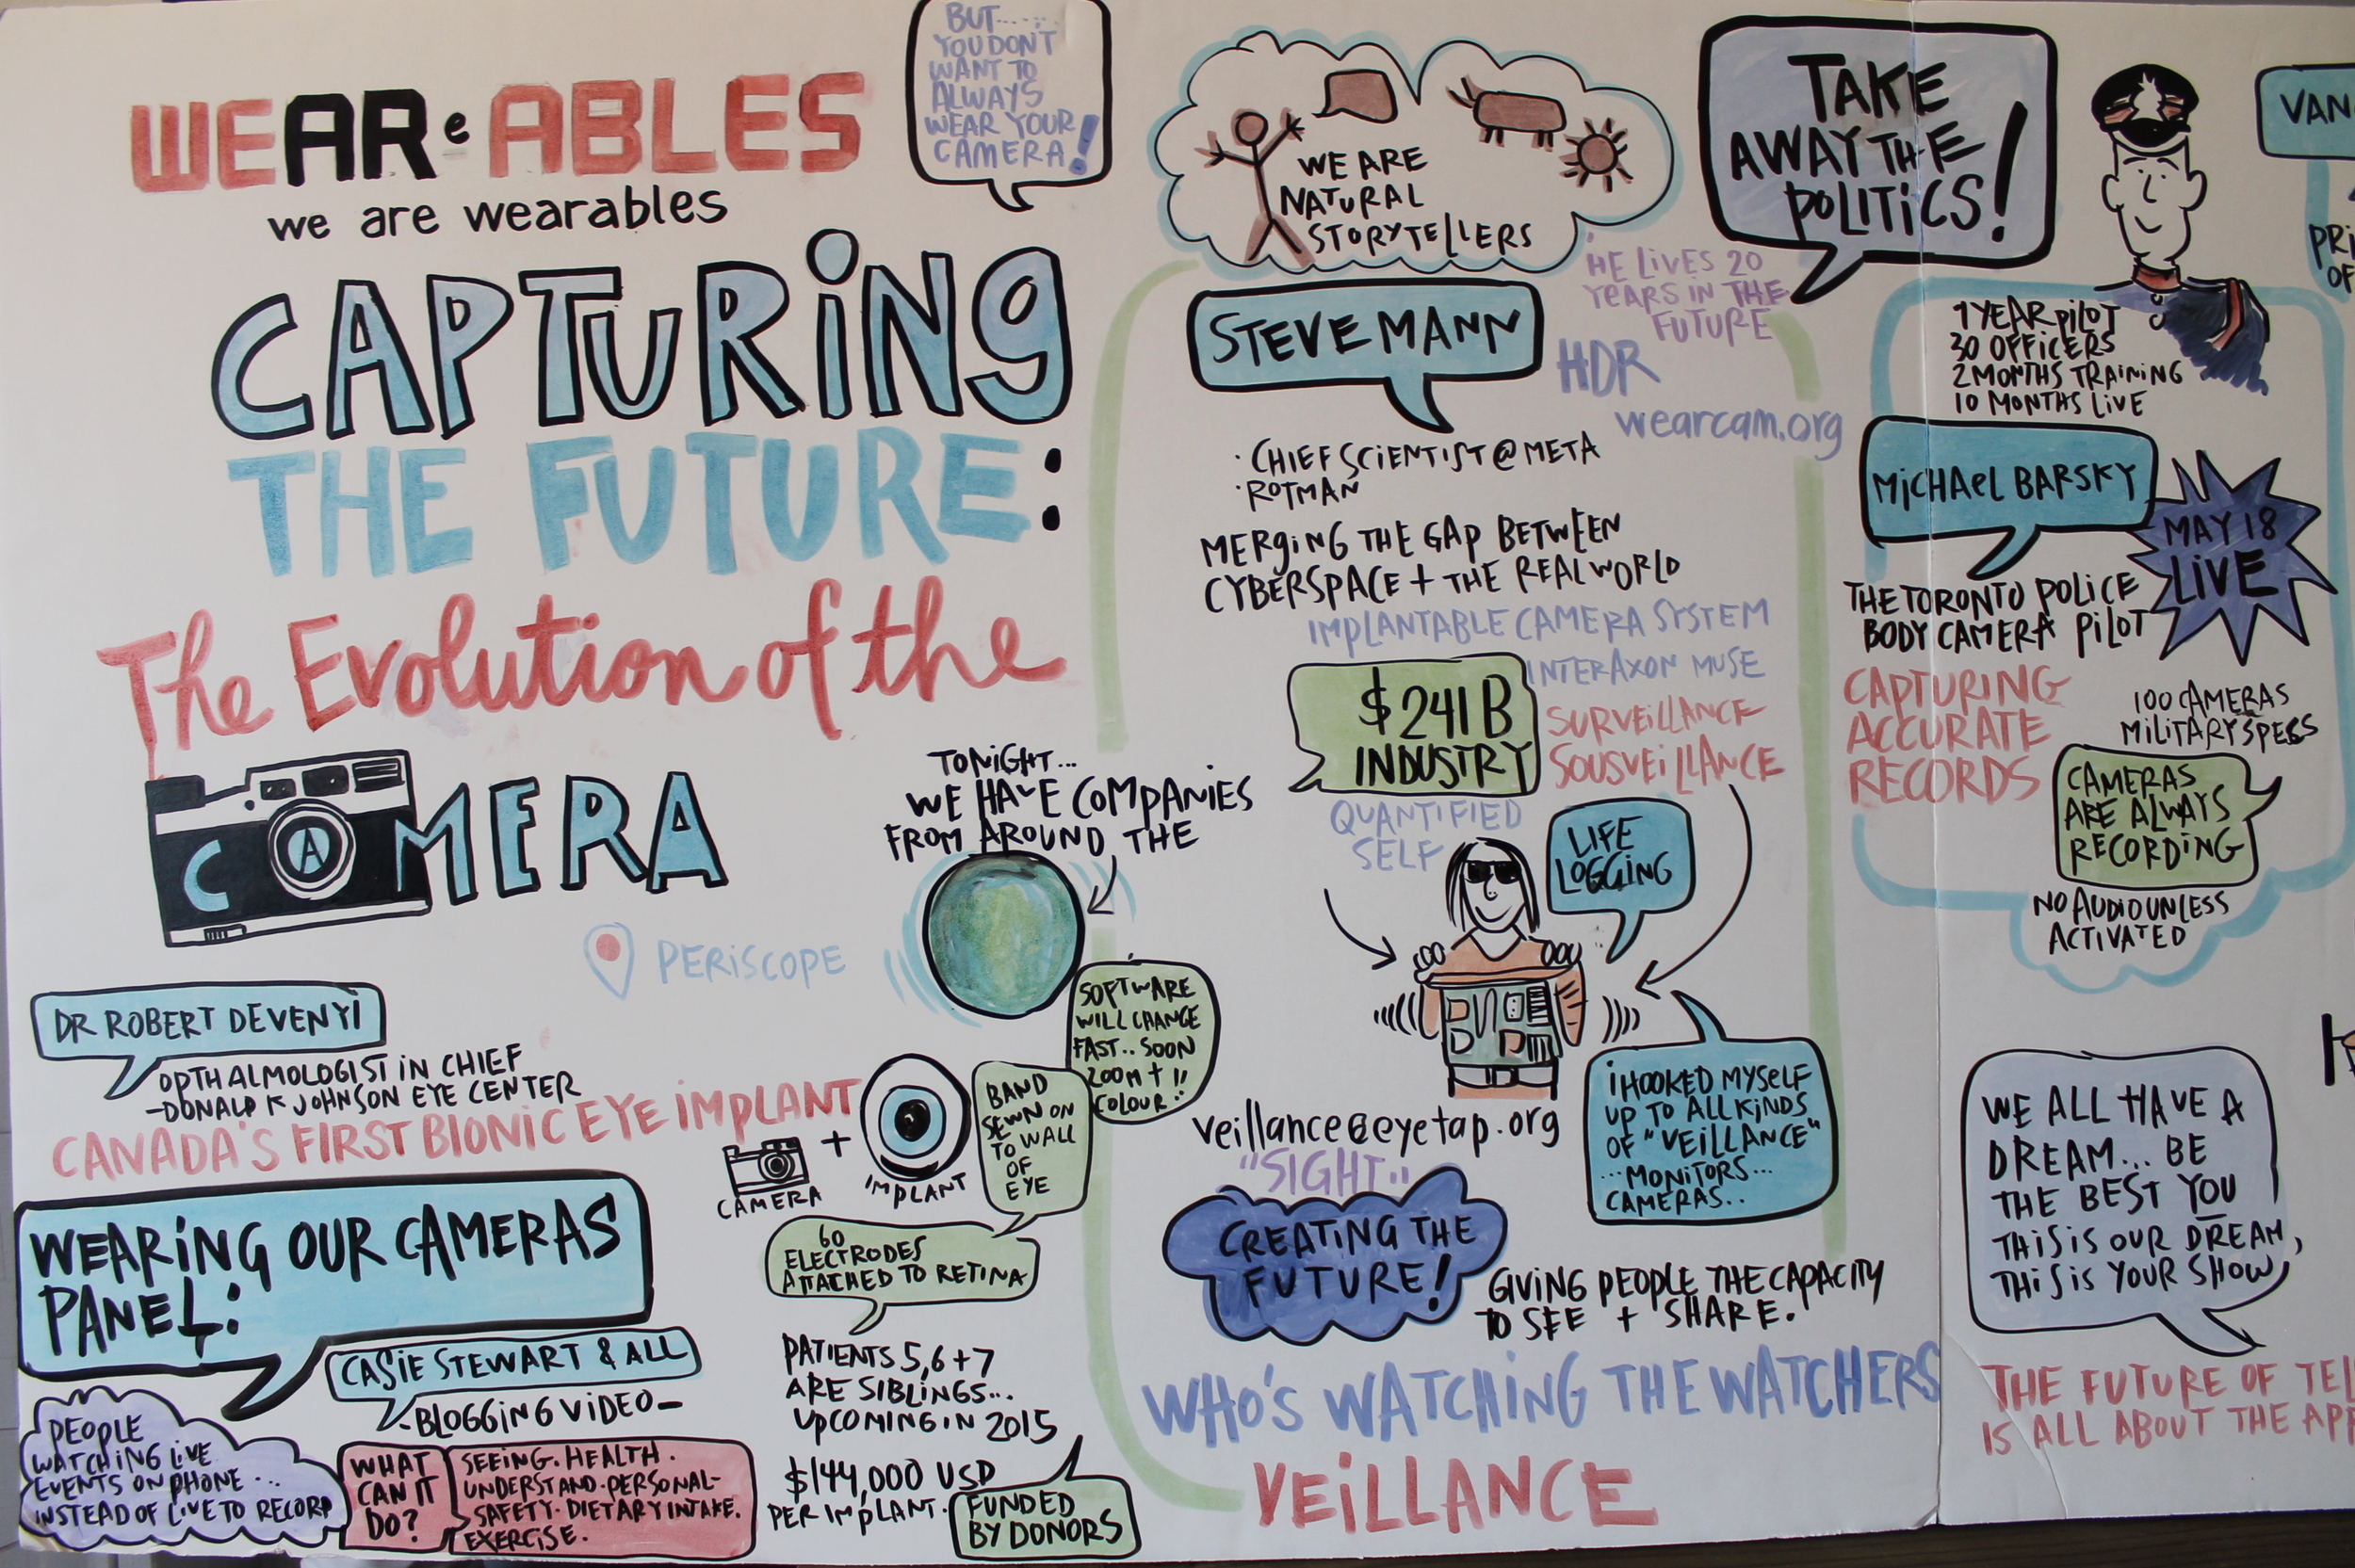 WEARe ABLES
we are wearables
BUT......
YOU DON'T
WANT TO
ALWAYS
WEAR YOUR
CAMERA!
CAPTURING
THE FUTURE:
The Evolution of the
CAMERA
TONIGHT...
WE HAVE COMPANIES
FROM AROUND THE
PERISCOPE
DR ROBERT DEVENYI
OPTHALMOLOGIST IN CHIEF
-DONALD K JOHNSON EYE CENTER
CANADA'S FIRST BIONIC EYE IMPLANT
CAMERA
+
IMPLANT
BAND
SEWN ON
TO WALL
OF
EYE
SOFTWARE
WILL CHANGE
FAST.. SOON
ZOOM +
COLOUR!!
60
ELECTRODES
ATTACHED TO RETINA
PATIENTS 5,6+7
ARE SIBLINGS...
UPCOMING IN 2015
$144,000 USD
PER IMPLANT.
FUNDED
BY DONORS
WEARING OUR CAMERAS
PANEL:
CASIE STEWART & ALL
-BLOGGING VIDEO-
PEOPLE
WATCHING LIVE
EVENTS ON PHONE...
INSTEAD OF LIVE TO RECORD
WHAT
CAN IT
DO?
SEEING. HEALTH.
UNDERSTAND. PERSONAL-
SAFETY. DIETARY INTAKE.
EXERCISE.
WE ARE
NATURAL
STORYTELLERS
STEVE MANN
"HE LIVES 20
YEARS IN THE
FUTURE
HDR
wearcam.org
· CHIEF SCIENTIST @ META
· ROTMAN
MERGING THE GAP BETWEEN
CYBERSPACE + THE REAL WORLD
IMPLANTABLE CAMERA SYSTEM
INTERAXON MUSE
$241B
INDUSTRY
SURVEILLANCE
SOUSVEILLANCE
QUANTIFIED
SELF
LIFE
LOGGING
I HOOKED MYSELF
UP TO ALL KINDS
OF "VEILLANCE"
...MONITORS...
CAMERAS..
veillance@eyetap.org
"SIGHT"
CREATING THE
FUTURE!
GIVING PEOPLE THE CAPACITY
TO SEE + SHARE.
WHO'S WATCHING THE WATCHERS
VEILLANCE
TAKE
AWAY THE
POLITICS!
1 YEAR PILOT
30 OFFICERS
2 MONTHS TRAINING
10 MONTHS LIVE
MICHAEL BARSKY
MAY 18
LIVE
THE TORONTO POLICE
BODY CAMERA PILOT
CAPTURING
ACCURATE
RECORDS
100 CAMERAS
MILITARY SPECS
CAMERAS
ARE ALWAYS
RECORDING
NO AUDIO UNLESS
ACTIVATED
WE ALL HAVE A
DREAM... BE
THE BEST YOU
THIS IS OUR DREAM,
THIS IS YOUR SHOW
THE FUTURE OF TEL
IS ALL ABOUT THE APP
VAN
PRI
OF